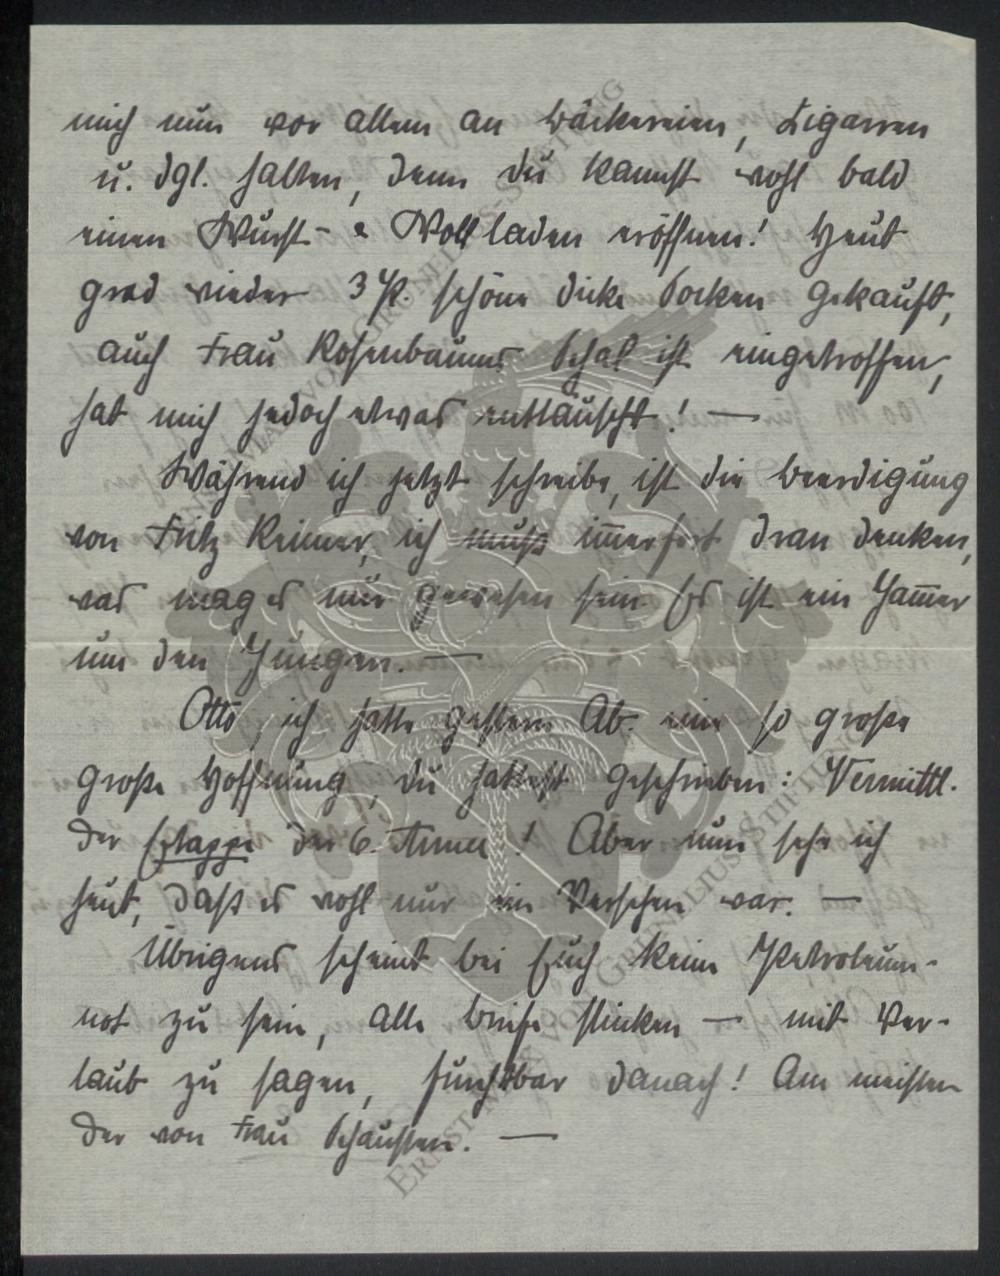 mich nun vor allem an Bäckereien, Zigarren
u. dgl. halten, denn du kannst wohl bald
einen Wurst- & Wollladen eröffnen! Heut
grad wieder 3 P. schöne dicke Socken gekauft,
auch Frau Rosenbaums Schal ist eingetroffen,
hat mich jedoch etwas enttäuscht! —
Während ich jetzt schreibe, ist die Beerdigung
von Fritz Reimer, ich muß im̅erfort dran denken,
was mag es nur gewesen sein Es ist ein Jam̅er
um den Jungen. —
Otto, ich hatte gestern Ab. eine so große
große Hoffnung, du hattest geschrieben: Vermittl.
der Etappe der 6. Armee! Aber nun sehe ich
heut, daß es wohl nur ein Versehen war. —
Übrigens scheint bei Euch keine Petroleum-
not zu sein, alle Briefe stinken — mit Ver-
laub zu sagen, furchtbar danach! Am meisten
der von Frau Schausten. —
ERNST MAX VON GRUNELIUS-STIFTUNG
ERNST MAX VON GRUNELIUS-STIFTUNG